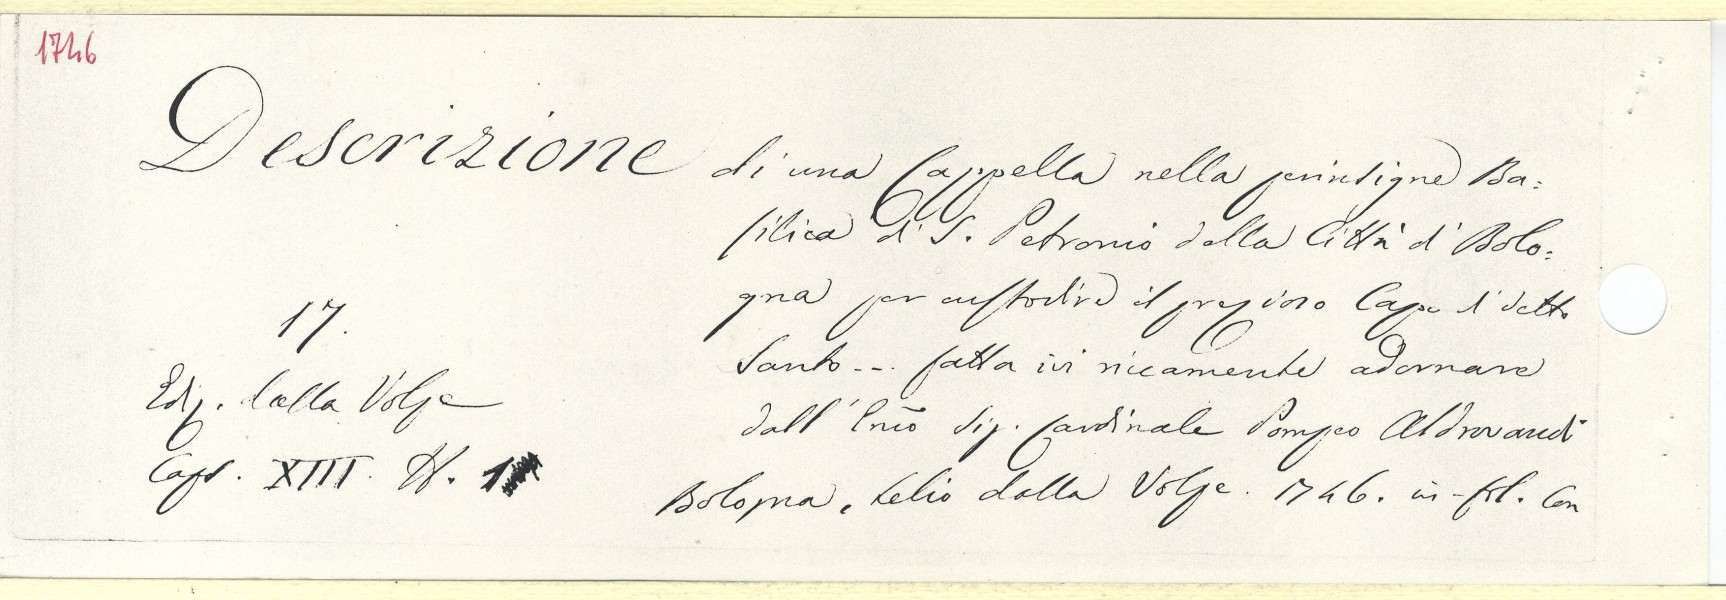 1746
Descrizione di una Cappella nella perinsigne Ba=
silica di S. Petronio della Città di Bolo=
gna per custodire il prezioso Capo di detto
Santo... fatta ivi riccamente adornare
dall' Emo Sig. Cardinale Pompeo Aldrovandi
Bologna, Lelio dalla Volpe. 1746. in-fol. Con
17.
Ediz. dalla Volpe
Caps. XIII. N. 1